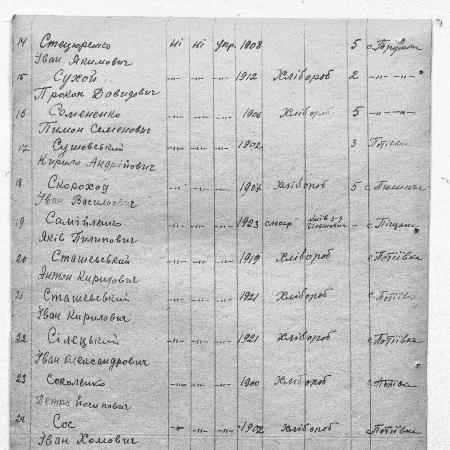 14 Стецюренко Ні Ні укр. 1908 5 с.
Іван Якимович
15 Сухой -"- -"- -"- 1912 Хлібороб 2 -"- -"-
Прокоп Давидович
16 Семененко -"- -"- -"- 1906 Хлібороб 5 -"- -"-
Пимон Семенович
17 Сушовський -"- -"- -"- 1902 3 Потіевка
Кирило Андрійович
18 Скороход -"- -"- -"- 1907 Хлібороб 5 с.
Іван Васильович
19 Самійленко -"- -"- -"- 1923 слюсар Київ з-д - с. Піщане
Яків Пилипович
20 Сташевський -"- -"- -"- 1919 Хлібороб с. Потіївка
Антон Кирилович
21 Сташевський -"- -"- -"- 1921 Хлібороб с. Потіївка
Іван Кирилович
22 Сілецький -"- -"- -"- 1921 Хлібороб с. Потіївка
Іван Олександрович
23 Соколенко -"- -"- -"- 1900 Хлібороб с. Потіївка
Петро Йосипович
24 Сос -"- -"- -"- 1902 Хлібороб с. Потіївка
Іван Хомович